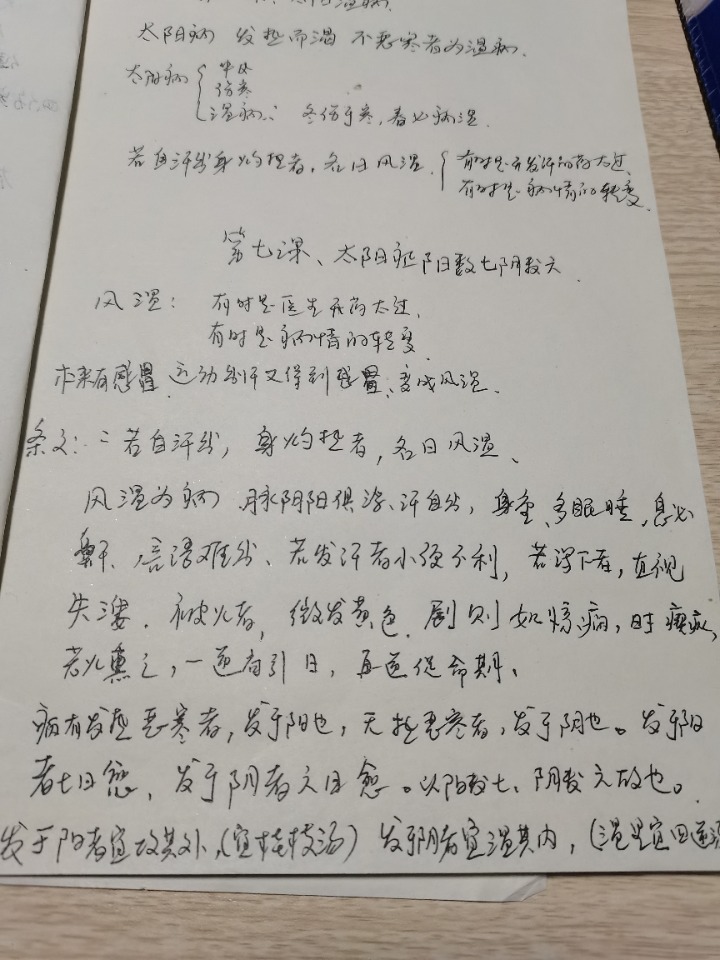 太阳病 发热而渴 不恶寒者为温病.
太阳病 { 中风
伤寒
温病: 冬伤于寒, 春必病温.
若自汗出身灼热者, 名曰风温. { 有时是开发汗的药太过.
有时是病情的转变.
第七课、太阳症阳数七阴数六
风温: 有时是医生开药太过.
有时是病情的转变
本来有感冒. 运动出汗又得到感冒、变成风温.
条文: 二若自汗出, 身灼热者, 名曰风温、
风温为病 脉阴阳俱浮、汗自出, 身重、多眠睡, 息必
鼾、言语难出、若发汗者小便不利, 若浮下者, 直视
失溲. 被火者, 微发黄色. 剧则如惊痫, 时瘈疭,
若火熏之, 一逆尚引日, 再逆促命期、
病有发热恶寒者, 发于阳也, 无热恶寒者, 发于阴也。发于阳
者七日愈, 发于阴者六日愈。以阳数七、阴数六故也。
发于阳者宜攻其外, (宜桂枝汤) 发于阴者宜温其内, (温里宜四逆汤